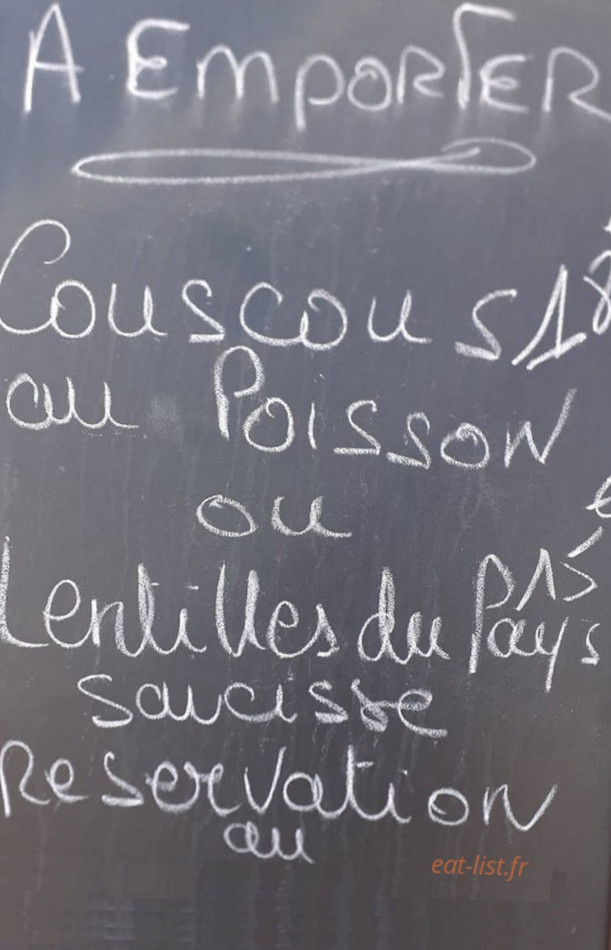 A EMPORTER
Couscous 18
au Poisson
ou
15
Lentilles du Pays
saucisse
Reservation
au
eat-list.fr